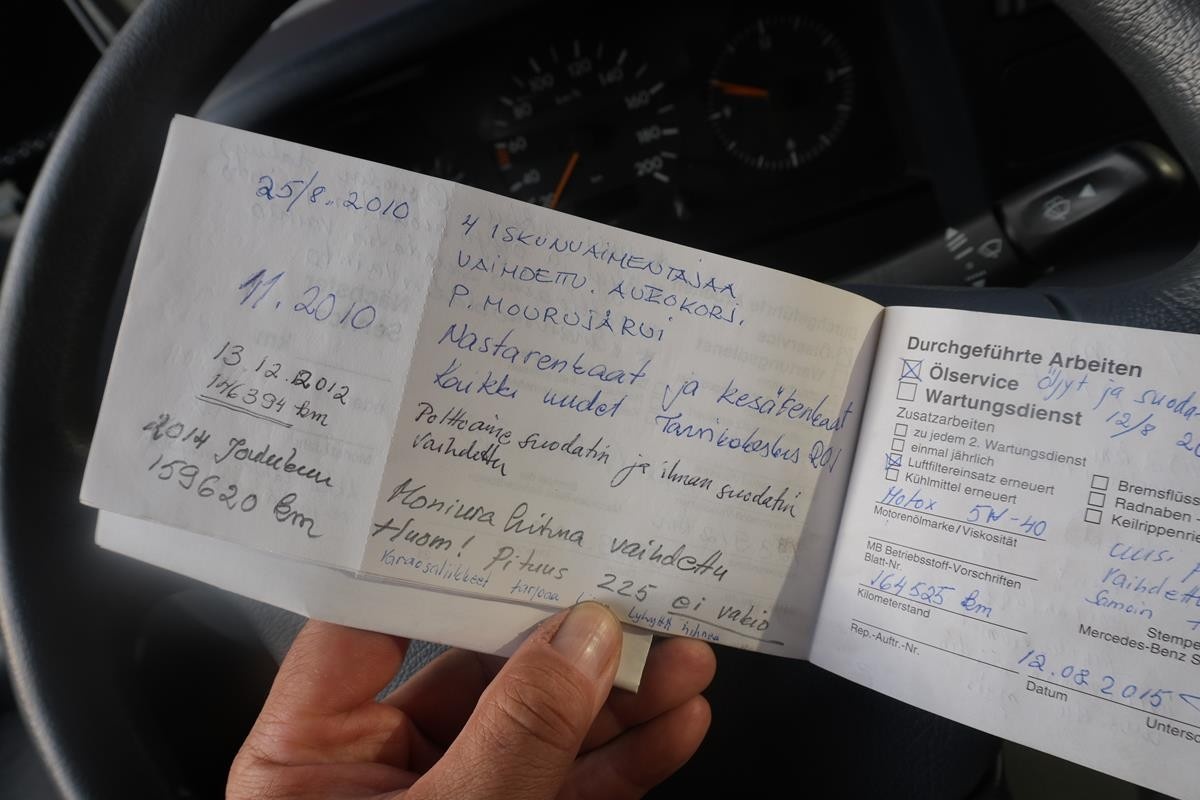 25/8.. 2010
4 ISKUNVAIMENTAJAA
VAIHDETTU. AUTOKORJ.
P. MOURUJÄRVI
11. 2010
Nastarenkaat ja kesärenkaat
kaikki uudet
13 12. 2012
146394 km
Polttoaine suodatin ja ilman suodatin
vaihdettu
2014 Joulukuu
159620 km
Moniura hihna vaihdettu
Huom! Pituus 225 ei vakio
tarjoaa
Lyhyttä hihnaa
Durchgeführte Arbeiten
Ölservice öljyt ja
12/8
Wartungsdienst
Zusatzarbeiten
zu jedem 2. Wartungsdienst
einmal jährlich
Luftfiltereinsatz erneuert
Kühlmittel erneuert
Motox 5W-40
Motorenölmarke/Viskosität
MB Betriebsstoff-Vorschriften
Blatt-Nr.
164525 km
Kilometerstand
Rep.-Auftr.-Nr.
Bremsflüss
Radnaben
Keilrippenri
uusi
vaihdettu
Samoin
Stempe
Mercedes-Benz S
12.08 2015
Datum
Untersc
40
60
80
100
120
140
160
180
200
km/h